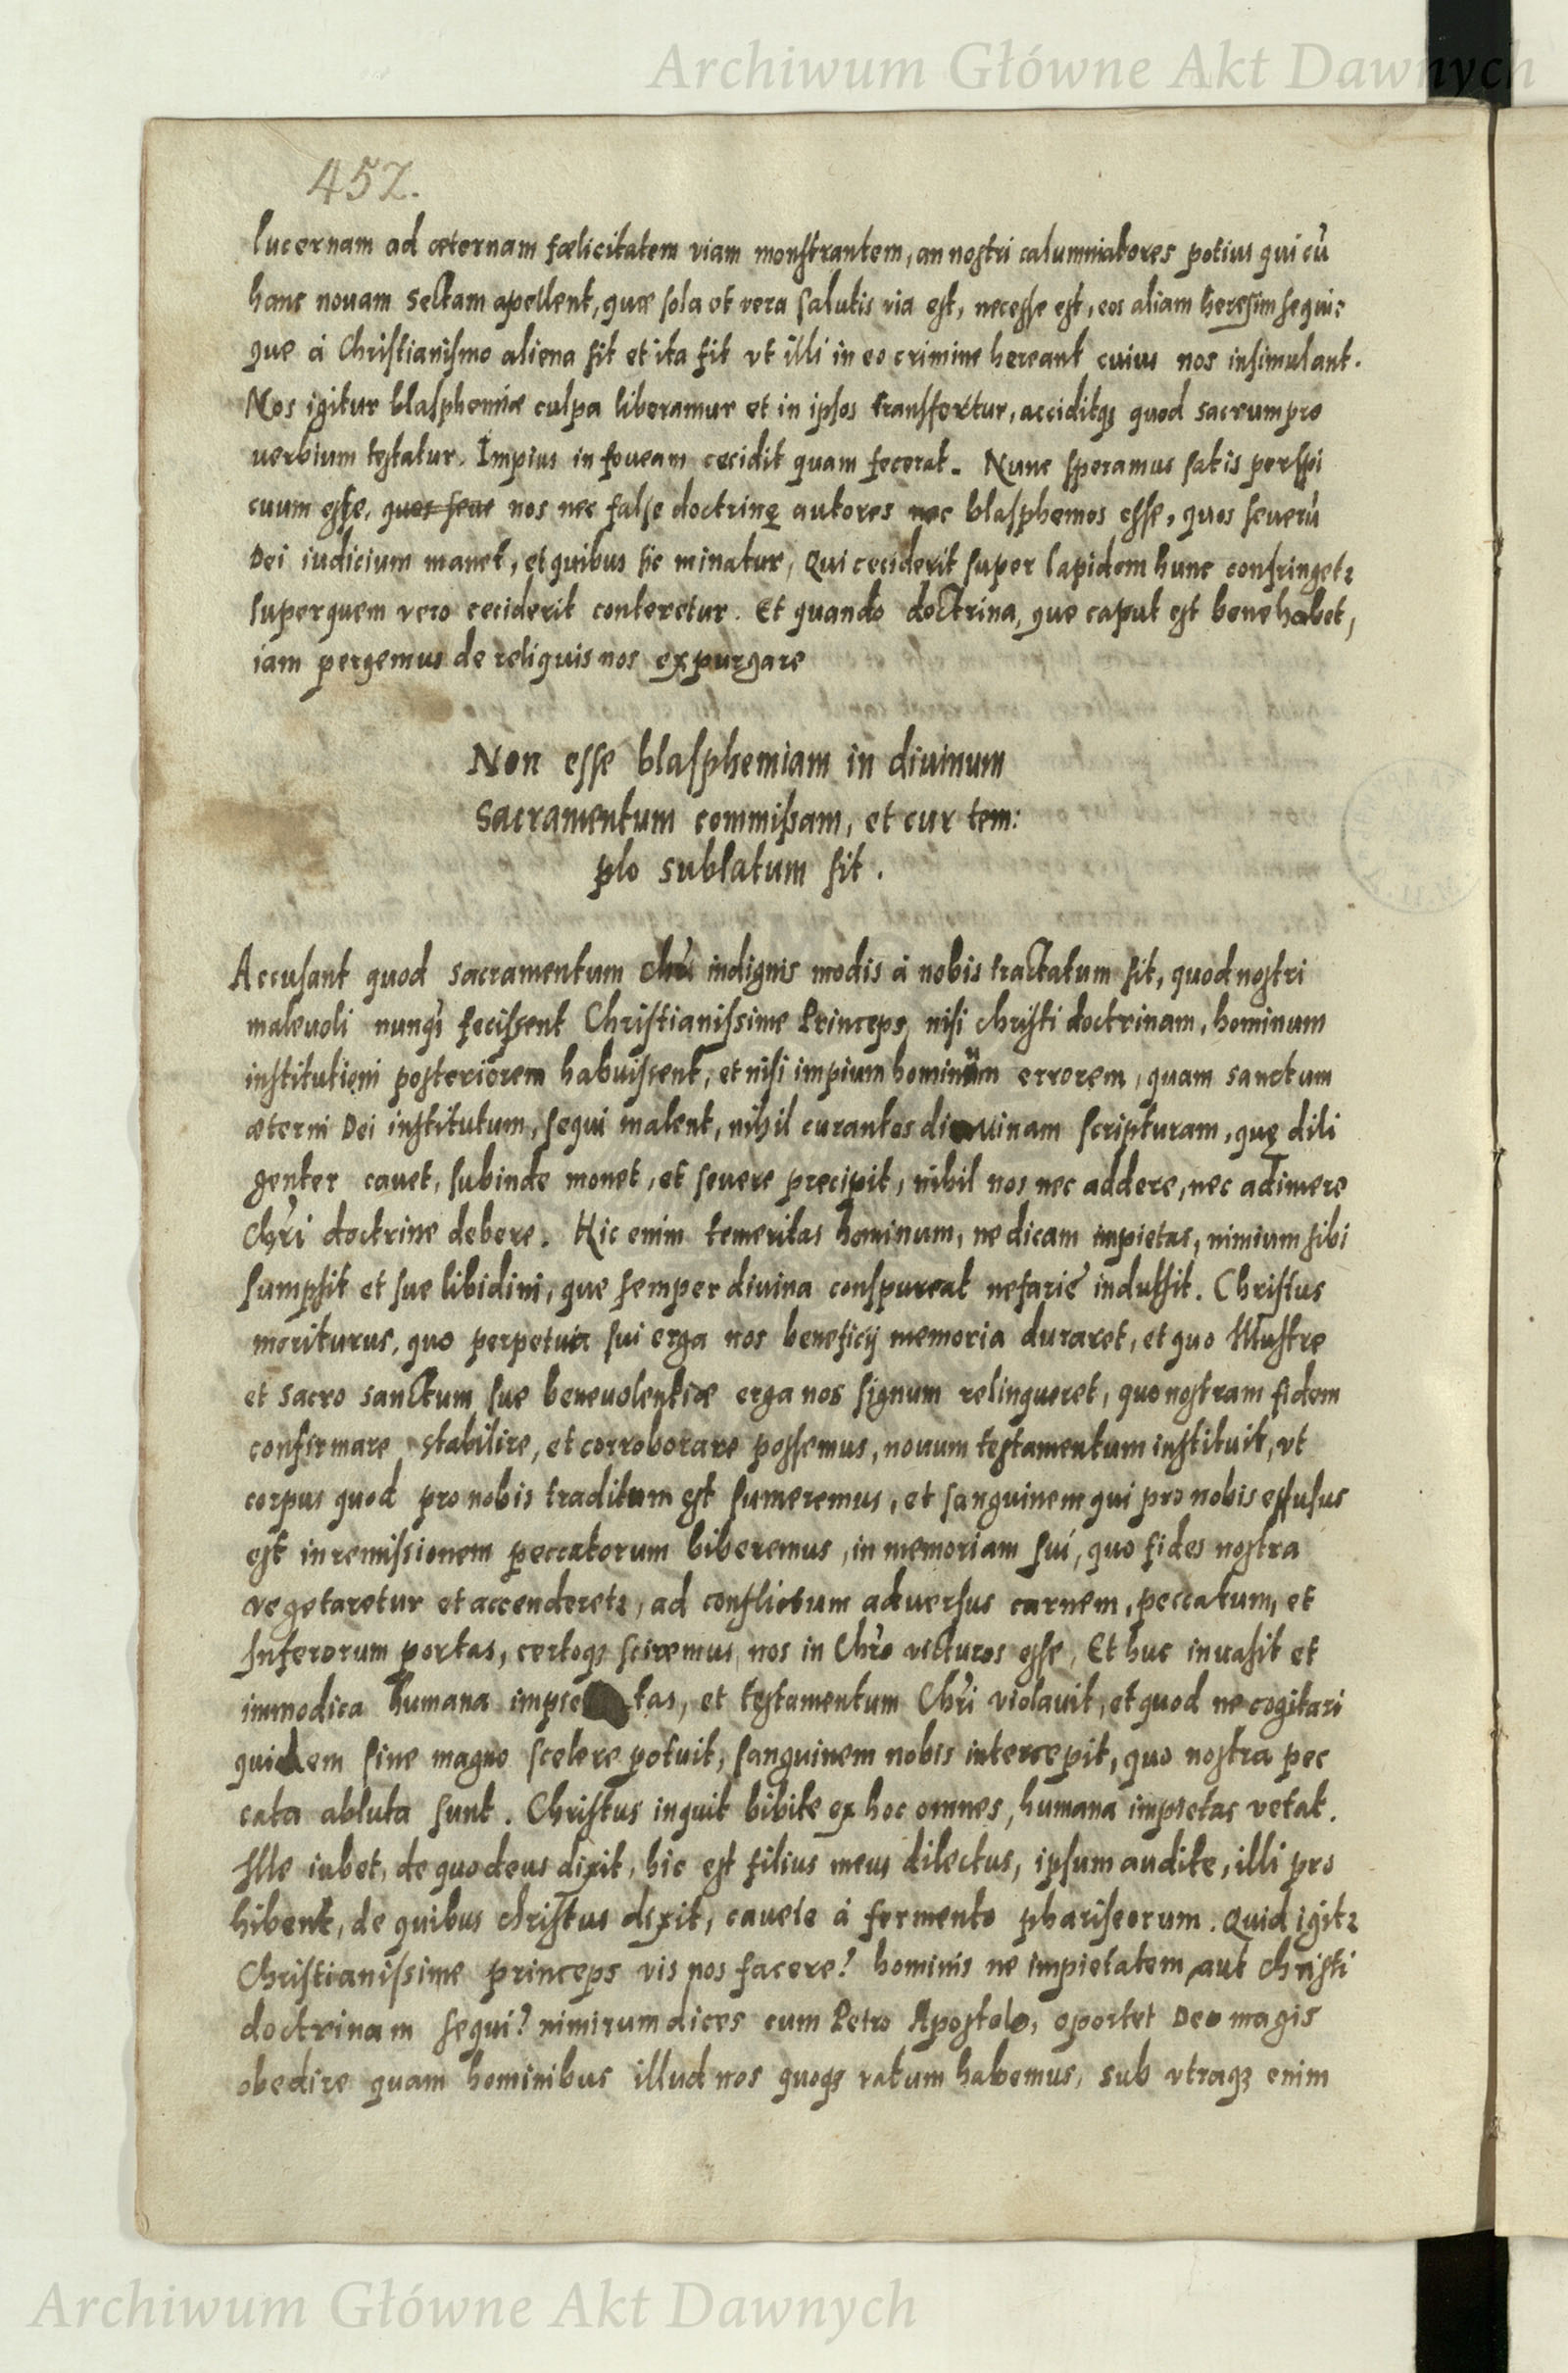 Archiwum Główne Akt Dawnych
452.
lucernam ad æternam fœlicitatem viam monstrantem, an nostri calumniatores potius qui cū
hanc nouam sectam apellent, quæ sola et vera salutis via est, necesse est, eos aliam heresim sequi:
que á Christianismo aliena sit et ita fit vt illi in eo crimine hereant cuius nos insimulant.
Nos igitur blasphemiæ culpa liberamur et in ipsos transfertur, acciditqȝ quod sacrum pro
uerbium testatur. Impius in foueam cecidit quam fecerat. Nunc speramus satis perspi
cuum esse, quos seue nos nec false doctrinę autores nec blasphemos esse, quos seuerū
Dei iudicium manet, et quibus sic minatur, Qui ceciderit super lapidem hunc confringetᷣ
super quem vero ceciderit conteretur. Et quando doctrina, que caput est bene habet,
iam pergemus de reliquis nos expurgare
Non esse blasphemiam in diuinum
Sacramentum commissam, et cur tem:
plo sublatum sit.
Accusant quod sacramentum chri indignis modis á nobis tractatum sit, quod nostri
maleuoli nunq̄ fecissent Christianissime Princeps, nisi christi doctrinam, hominum
institutioni posteriorem habuissent, et nisi impium hominum errorem, quam sanctum
æterni Dei institutum, sequi malent, nihil curantes diuinam scripturam, quę dili
genter cauet, subinde monet, et seuere precipit, nihil nos nec addere, nec adimere
Chr̄i doctrine debere. Hic enim temeritas hominum, ne dicam impietas, nimium sibi
sumpsit et sue libidini, que semper diuina conspureat nefarié indulsit. Christus
moriturus, quo perpetua sui erga nos beneficij memoria duraret, et quo illustre
et sacro sanctum sue beneuolentiæ erga nos signum relinqueret, quo nostram fidem
confirmare stabilire, et corroborare possemus, nouum testamentum instituit, vt
corpus quod pro nobis traditum est sumeremus, et sanguinem qui pro nobis effusus
est in remissionem peccatorum biberemus, in memoriam sui, quo fides nostra
vegetaretur et accenderetᷣ, ad conflictum aduersus carnem, peccatum, et
Inferorum portas, certoqȝ sciremus, nos in Chr̄o victuros esse, Et huc inuasit et
immodica humana impietas, et testamentum Chr̄i violauit, et quod ne cogitari
quidem sine magno scelere potuit, sanguinem nobis intercepit, quo nostra pec
cata abluta sunt. Christus inquit bibite ex hoc omnes, humana impietas vetat.
Ille iubet, de quo deus dixit, hic est filius meus dilectus, ipsum audite, illi pro
hibent, de quibus christus dixit, cauete á fermento phariseorum. Quid igitᷣ
Christianissime princeps vis nos facere? hominis ne impietatem aut christi
doctrinam sequi? nimirum dices cum Petro Apostolo, oportet Deo magis
obedire quam hominibus illud nos quoqȝ ratum habemus, sub vtraqȝ enim
Archiwum Główne Akt Dawnych